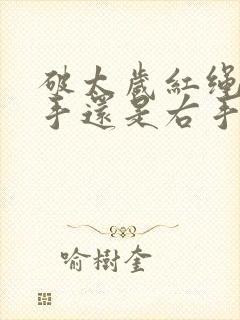 破太歲紅繩
手還是右手
喻樹奎